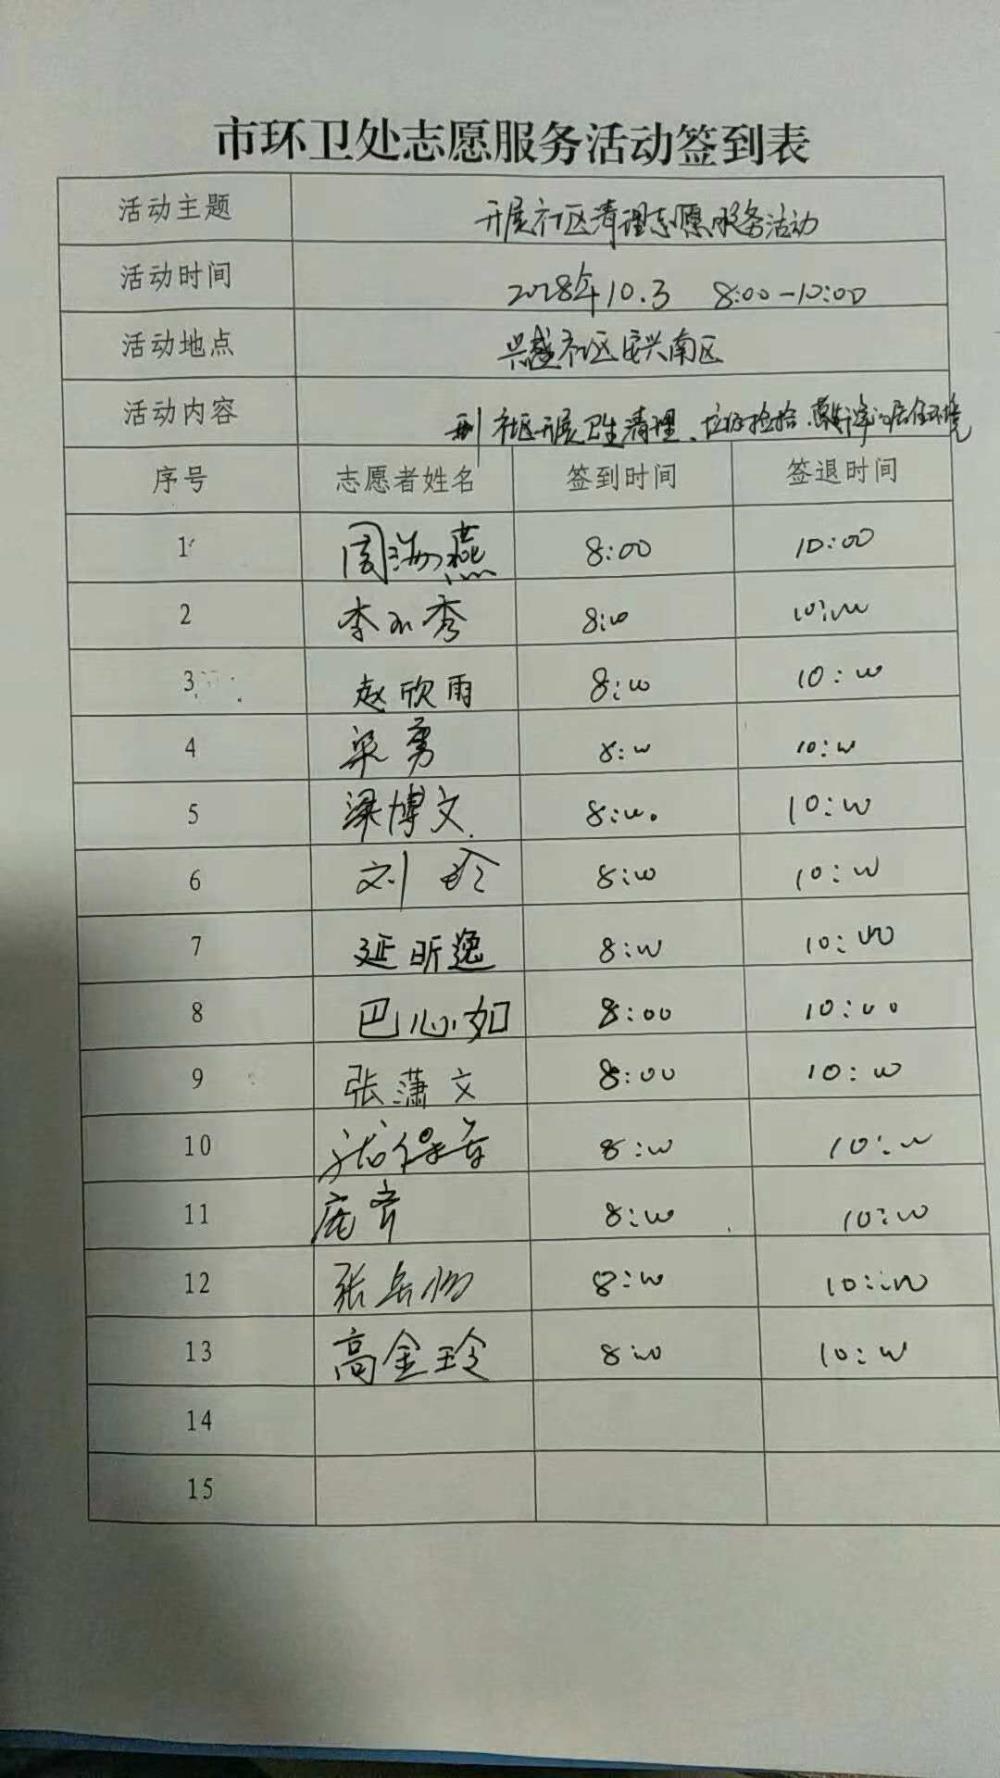 市环卫处志愿服务活动签到表
活动主题 开展社区清理志愿服务活动
活动时间 2028年10.3 8:00-10:00
活动地点 兴盛社区安兴南区
活动内容 到社区开展卫生清理、垃圾捡拾、居住环境
序号 志愿者姓名 签到时间 签退时间
1 周海燕 8:00 10:00
2 李 秀 8:00 10:00
3 赵欣雨 8:00 10:00
4 梁勇 8:00 10:00
5 梁博文 8:00 10:00
6 刘玲 8:00 10:00
7 延昕逸 8:00 10:00
8 巴心如 8:00 10:00
9 张潇文 8:00 10:00
10 8:00 10:00
11 庞齐 8:00 10:00
12 张 8:00 10:00
13 高金玲 8:00 10:00
14
15